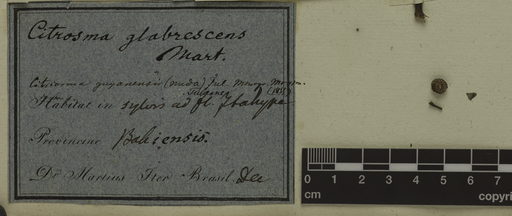 Citrosma glabrescens
Mart.
Citriosma guyanensis (nuda) Tul. Monogr. Monim.
Habitat in sylvis ad fl. Itahype
Provinciae Bahiensis.
Dr Martius Iter Brasil. Dec
0 1 2 3 4 5 6 7
cm copyri